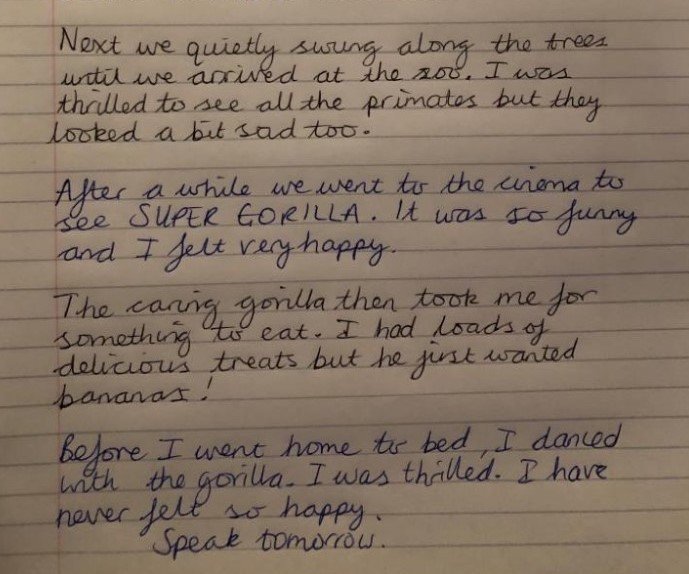 Next we quietly swung along the trees
until we arrived at the zoo. I was
thrilled to see all the primates but they
looked a bit sad too.
After a while we went to the cinema to
see SUPER GORILLA. It was so funny
and I felt very happy.
The caring gorilla then took me for
something to eat. I had loads of
delicious treats but he just wanted
bananas!
Before I went home to bed, I danced
with the gorilla. I was thrilled. I have
never felt so happy.
Speak tomorrow.